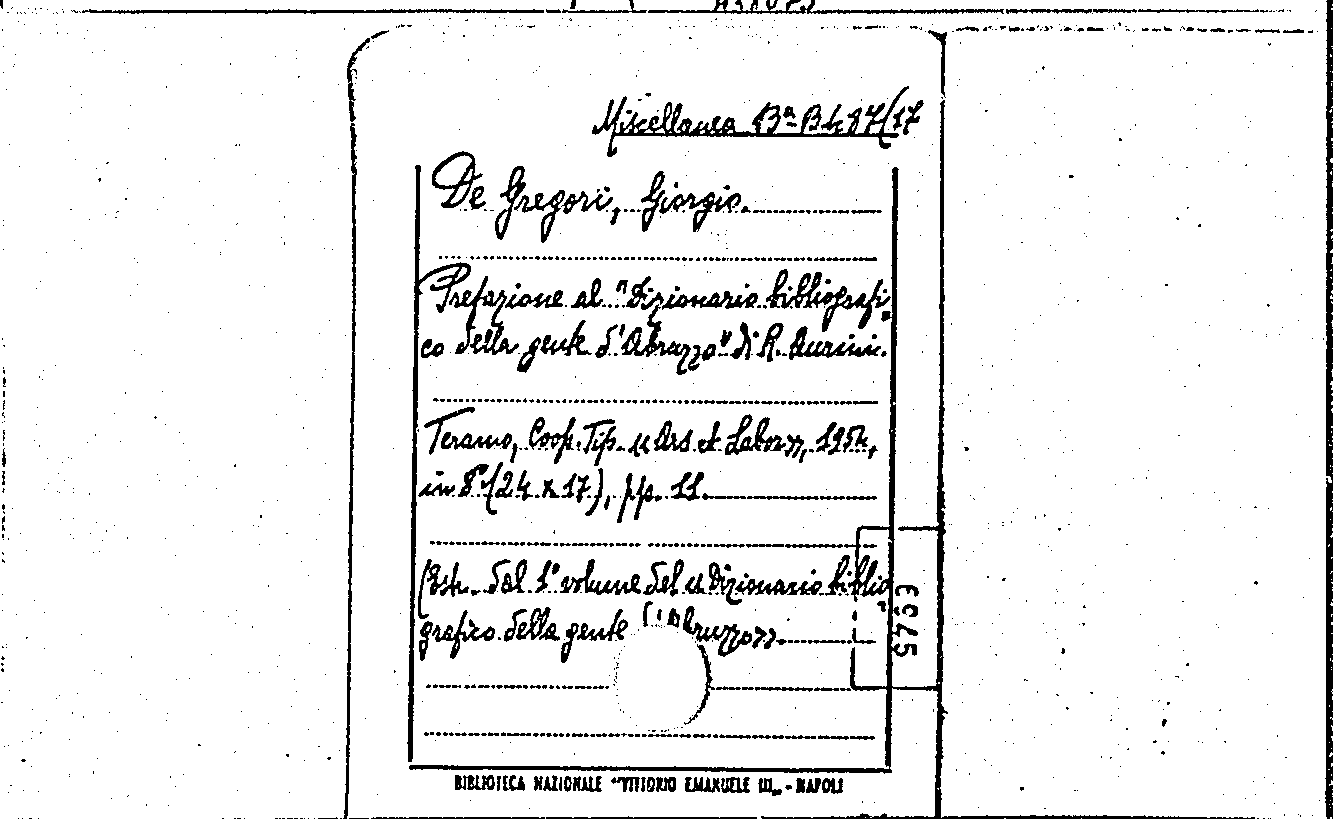 Miscellanea Bª B 487/17
De Gregori, Giorgio.
Prefazione al "Dizionario bibliografi-
co della gente d'Abruzzo" di R. Aurini.
Teramo, Coop. Tip. «Ars et Labor», 1952,
in 8° (24 x 17), pp. 11.
(Estr. dal 1° volume del «Dizionario biblio-
grafico della gente d'Abruzzo».
BIBLIOTECA NAZIONALE "VITTORIO EMANUELE III„ - NAPOLI